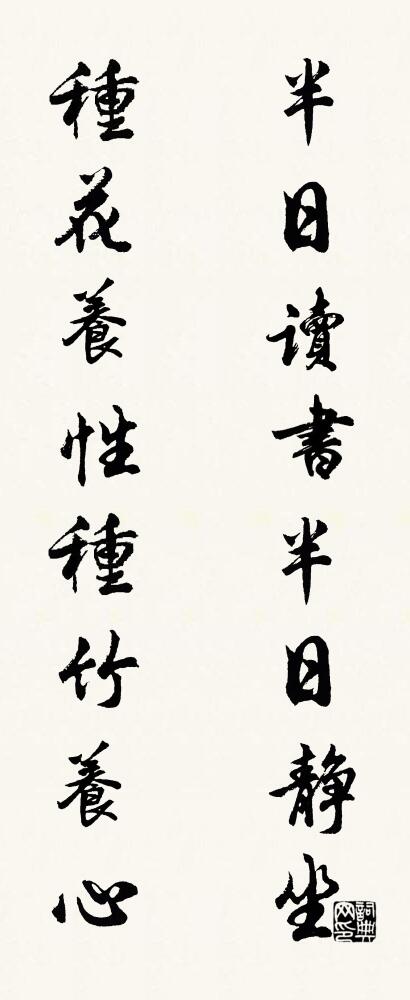 半日讀書半日静坐
種花養性種竹養心
詞典网印